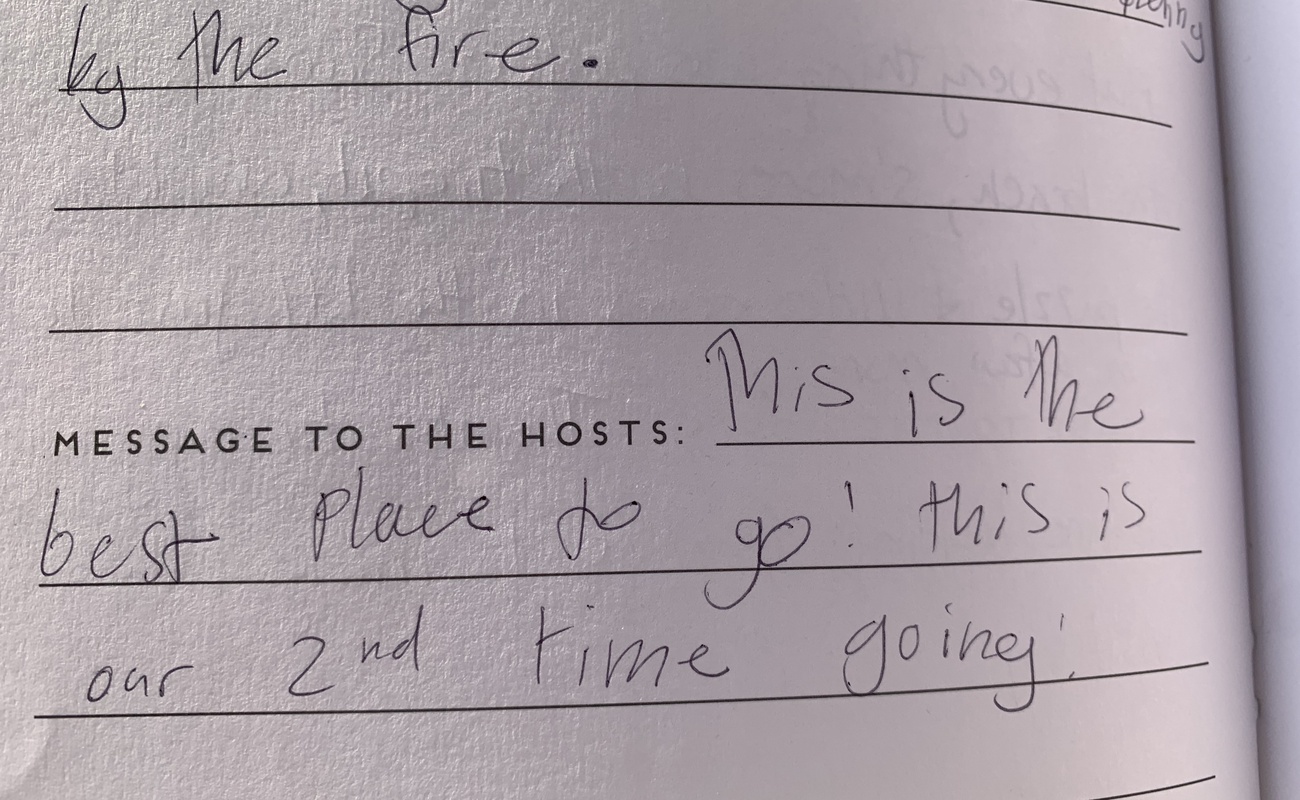 by the fire.
MESSAGE TO THE HOSTS: This is the
best place to go! this is
our 2nd time going!